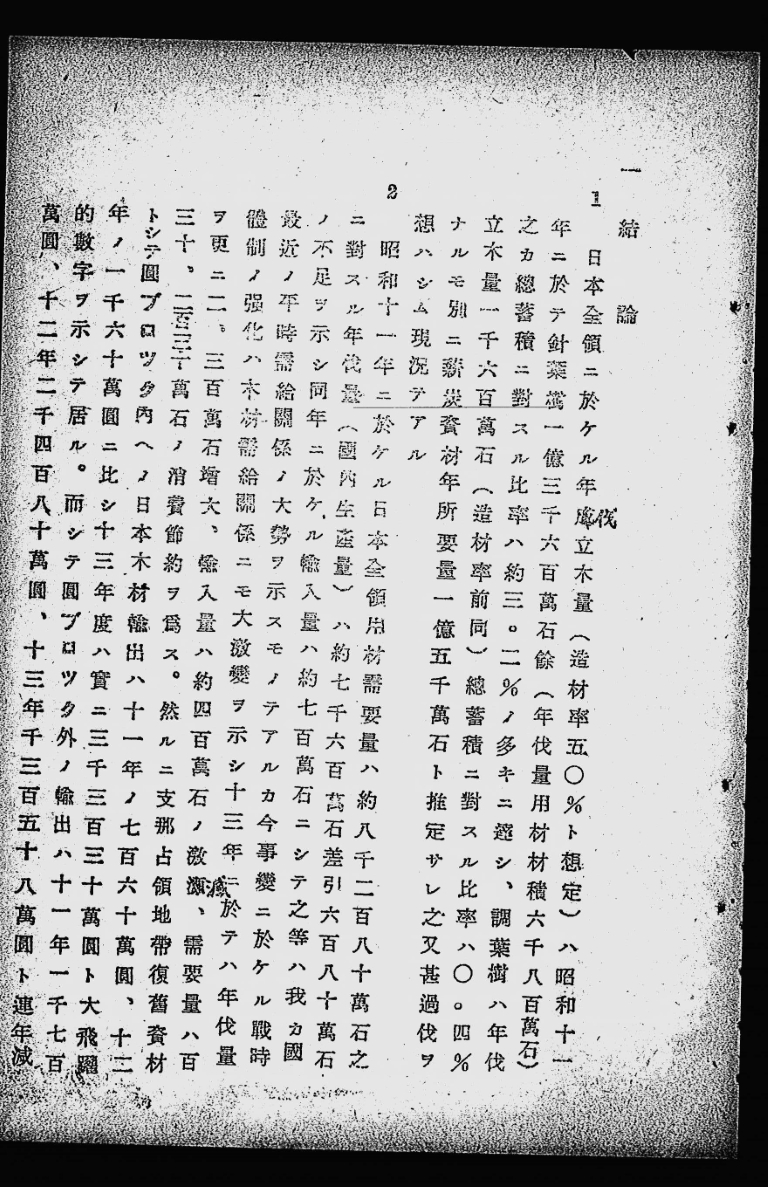 一
結論
1
日本全領ニ於ケル年伐立木量（造材率五〇％ト想定）ハ昭和十一
年ニ於テ針葉樹一億三千六百萬石餘（年伐量用材材積六千八百萬石）
之カ總蓄積ニ對スル比率ハ約三。二％ノ多キニ達シ、調葉樹ハ年伐
立木量一千六百萬石（造材率前同）總蓄積ニ對スル比率ハ〇。四％
ナルモ別ニ薪炭資材年所要量一億五千萬石ト推定サレ之又甚過伐ヲ
想ハシム現況テアル
2
昭和十一年ニ於ケル日本全領用材需要量ハ約八千二百八十萬石之
ニ對スル年伐量（國內生產量）ハ約七千六百萬石差引六百八十萬石
ノ不足ヲ示シ同年ニ於ケル輸入量ハ約七百萬石ニシテ之等ハ我カ國
最近ノ平時需給關係ノ大勢ヲ示スモノテアルカ今事變ニ於ケル戰時
體制ノ强化ハ木材需給關係ニモ大激變ヲ示シ十三年ニ於テハ年伐量
ヲ更ニ二、三百萬石增大、輸入量ハ約四百萬石ノ激減、需要量ハ百
三十、二百三十萬石ノ消費節約ヲ爲ス。然ルニ支那占領地帶復舊資材
トシテ圓ブロツク內ヘノ日本木材輸出ハ十一年ノ七百六十萬圓、十二
年ノ一千六十萬圓ニ比シ十三年度ハ實ニ三千三百三十萬圓ト大飛躍
的數字ヲ示シテ居ル。而シテ圓ブロツク外ノ輸出ハ十一年一千七百
萬圓、十二年二千四百八十萬圓、十三年千三百五十八萬圓ト連年減